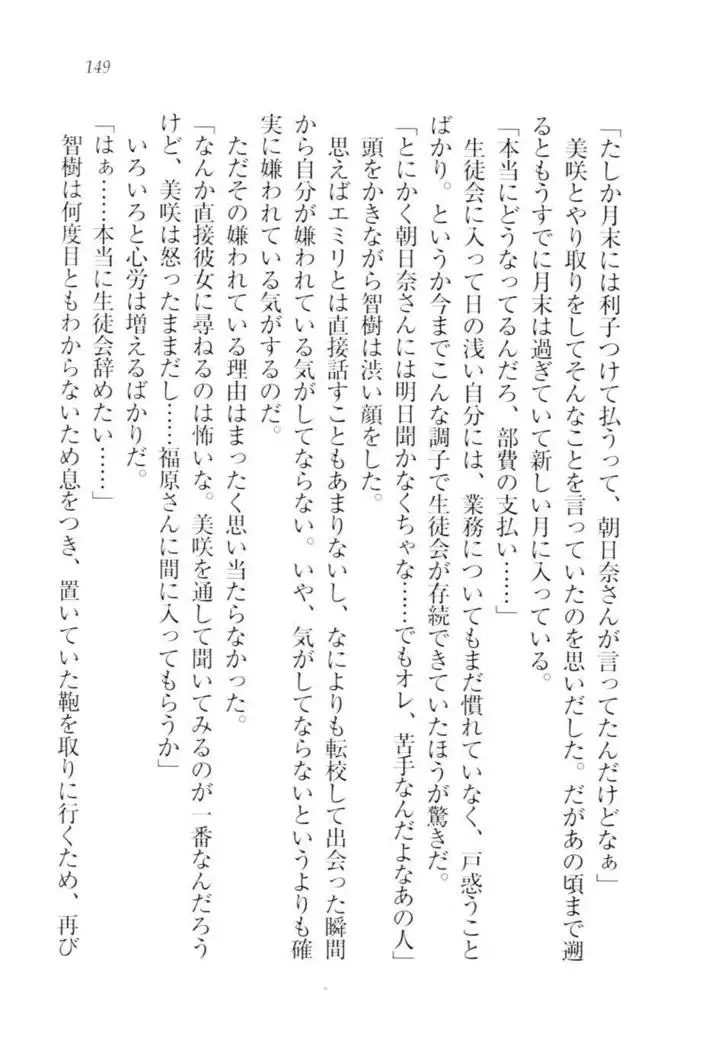 149
「たしか月末には利子つけて払うって、朝日奈さんが言ってたんだけどなぁ」
美咲とやり取りをしてそんなことを言っていたのを思いだした。だがあの頃まで遡
るともうすでに月末は過ぎていて新しい月に入っている。
「本当にどうなってるんだろ、部費の支払い……」
生徒会に入って日の浅い自分には、業務についてもまだ慣れていなく、戸惑うこと
ばかり。というか今までこんな調子で生徒会が存続できていたほうが驚きだ。
「とにかく朝日奈さんには明日聞かなくちゃな……でもオレ、苦手なんだよなあの人」
頭をかきながら智樹は渋い顔をした。
思えばエミリとは直接話すこともあまりないし、なによりも転校して出会った瞬間
から自分が嫌われている気がしてならない。いや、気がしてならないというよりも確
実に嫌われている気がするのだ。
ただその嫌われている理由はまったく思い当たらなかった。
「なんか直接彼女に尋ねるのは怖いな。美咲を通して聞いてみるのが一番なんだろう
けど、美咲は怒ったままだし……福原さんに間に入ってもらうか」
いろいろと心労は増えるばかりだ。
「はぁ……本当に生徒会辞めたい……」
智樹は何度目ともわからないため息をつき、置いていた鞄を取りに行くため、再び